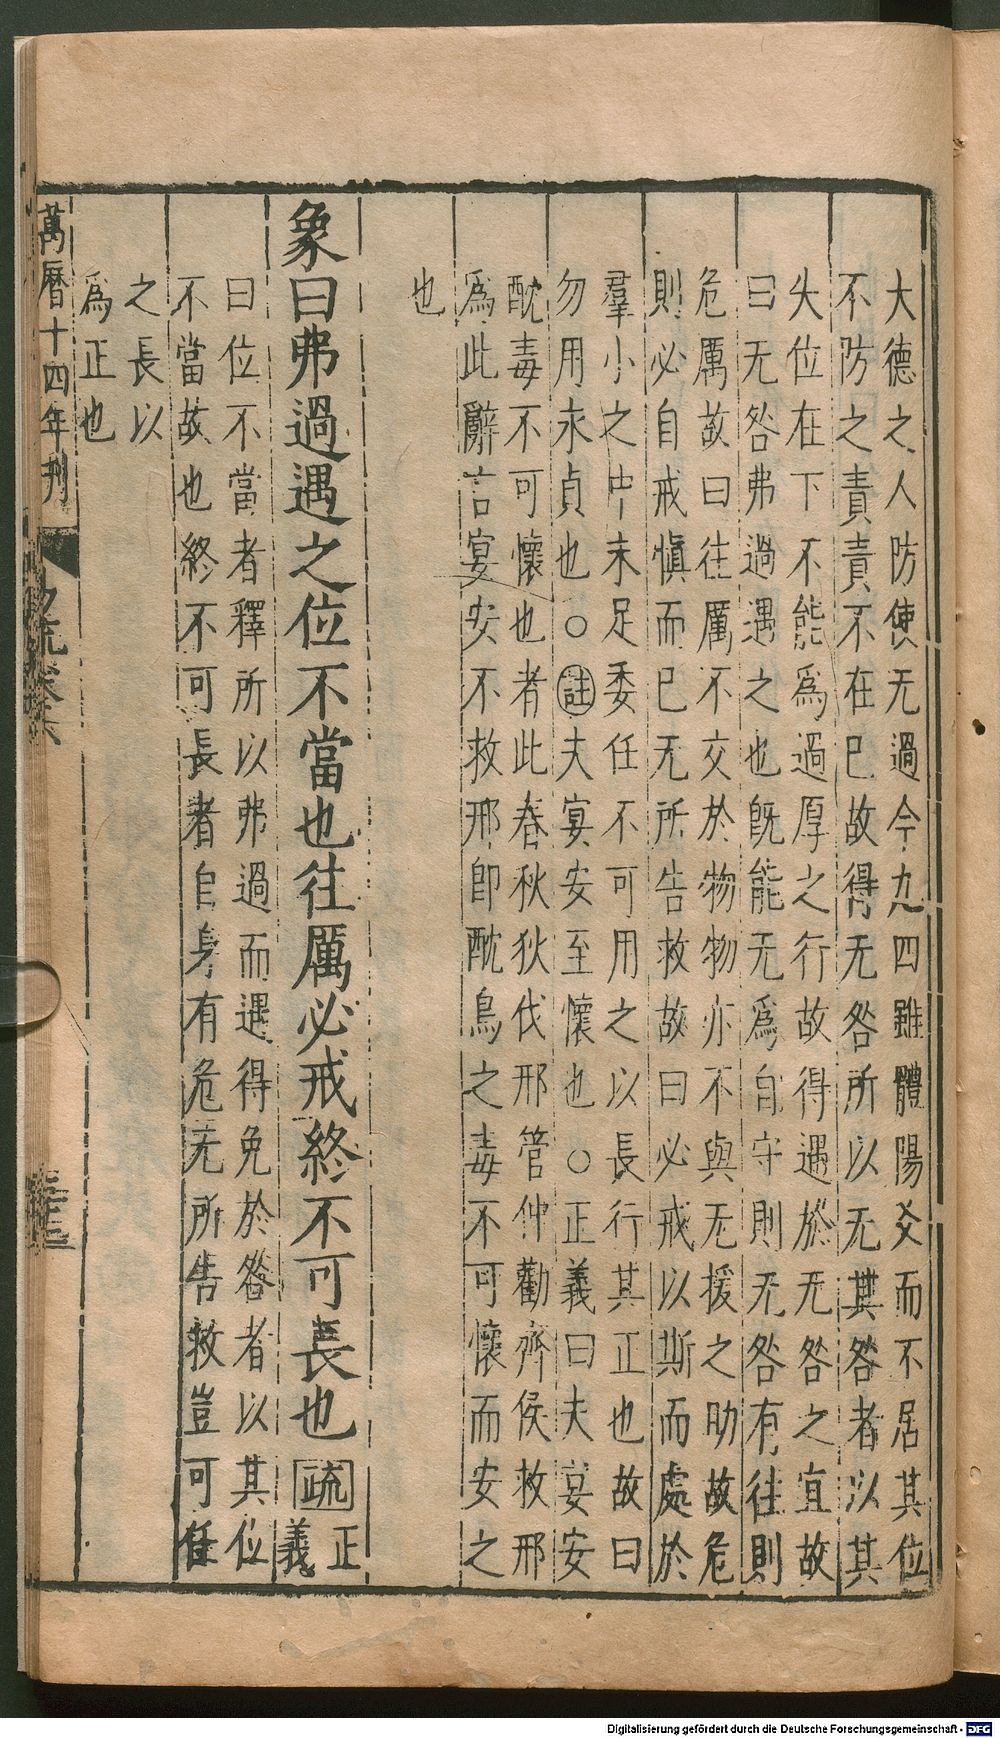 大德之人防使无過今九四雖體陽爻而不居其位
不防之責責不在己故得无咎所以无其咎者以其
失位在下不能爲過厚之行故得遇於无咎之宜故
曰无咎弗過遇之也旣能无爲自守則无咎有往則
危厲故曰往厲不交於物物亦不與无援之助故危
則必自戒慎而已无所告救故曰必戒以斯而處於
羣小之中未足委任不可用之以長行其正也故曰
勿用永貞也○註夫宴安至懷也○正義曰夫宴安
酖毒不可懷也者此春秋狄伐邢管仲勸齊侯救邢
爲此辭言宴安不救邢卽酖鳥之毒不可懷而安之
也
象曰弗過遇之位不當也往厲必戒終不可長也疏正義
曰位不當者釋所以弗過而遇得免於咎者以其位
不當故也終不可長者自身有危无所告救豈可任
之長以
爲正也
萬曆十四年刊
易疏卷六
三十三
Digitalisierung gefördert durch die Deutsche Forschungsgemeinschaft - DFG